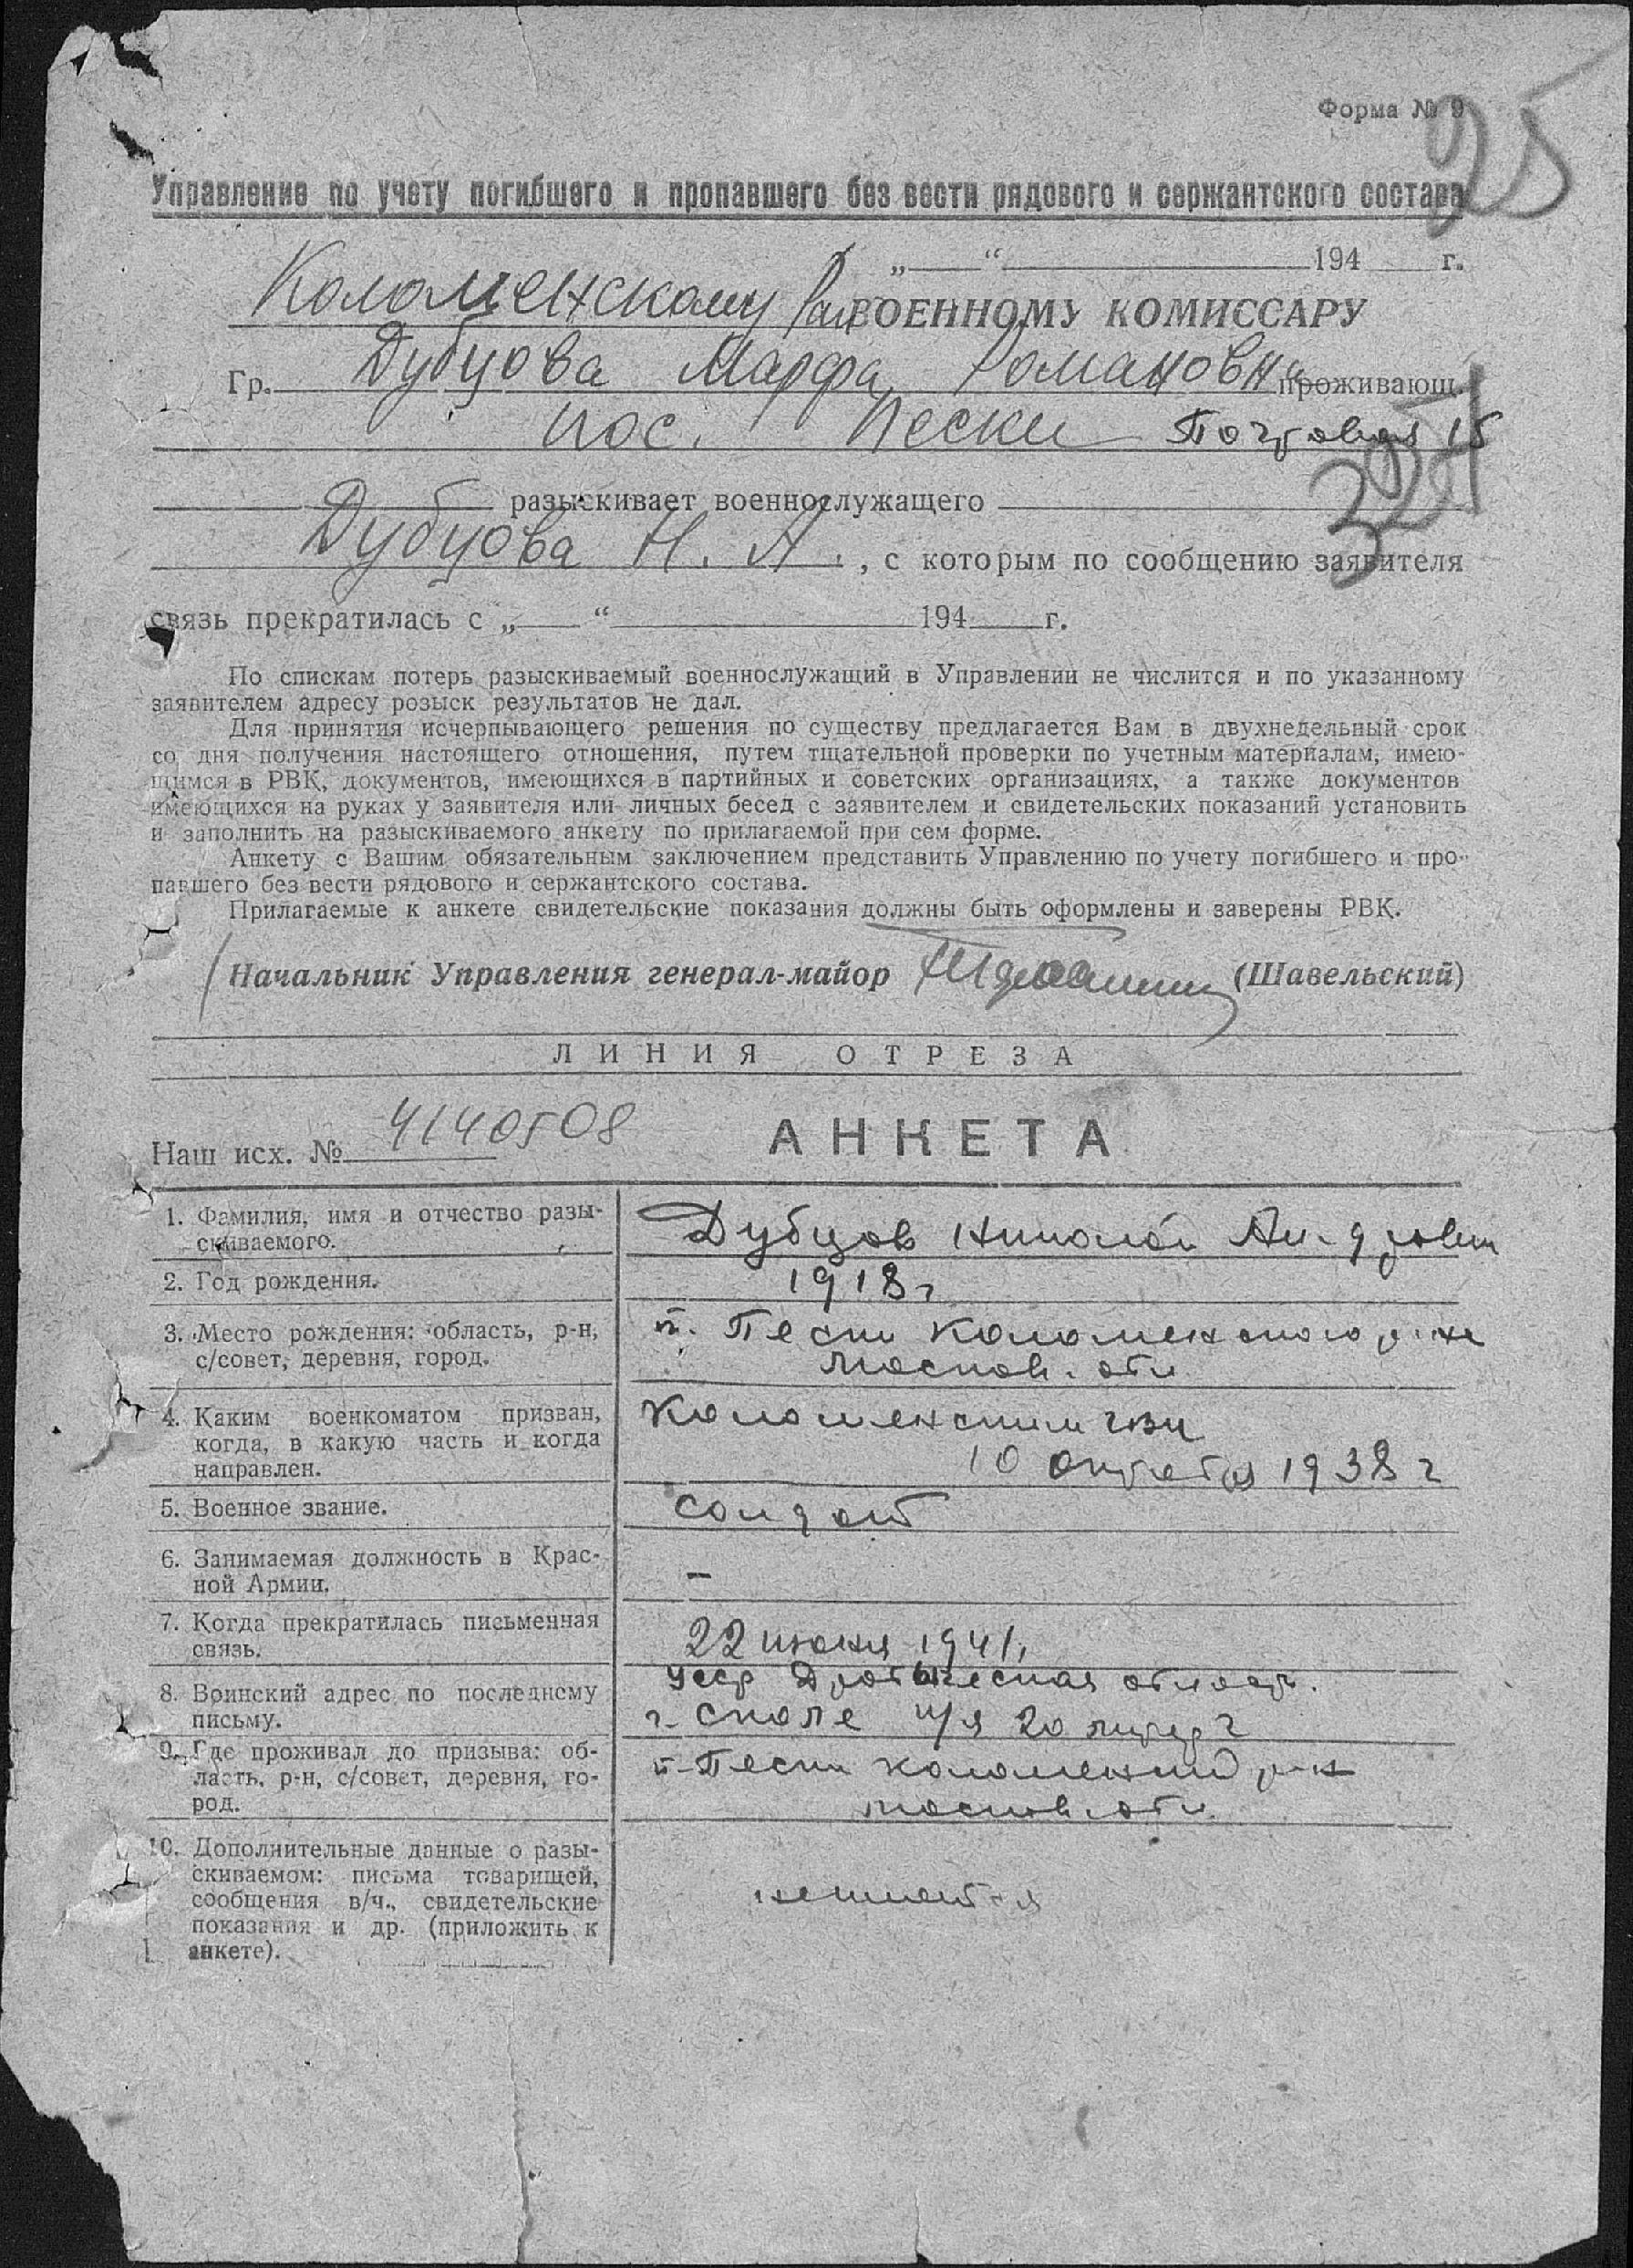 Форма № 9
25
Управление по учету погибшего и пропавшего без вести рядового и сержантского состава
„ “ 194 г.
Коломенскому Рай ВОЕННОМУ КОМИССАРУ
Гр. Дубцова Марфа Романовна проживающ.
пос. Пески Почтовая 15
разыскивает военнослужащего
Дубцова Н. А. , с которым по сообщению заявителя
связь прекратилась с „ “ 194 г.
По спискам потерь разыскиваемый военнослужащий в Управлении не числится и по указанному
заявителем адресу розыск результатов не дал.
Для принятия исчерпывающего решения по существу предлагается Вам в двухнедельный срок
со дня получения настоящего отношения, путем тщательной проверки по учетным материалам, имею-
щимся в РВК, документов, имеющихся в партийных и советских организациях, а также документов
имеющихся на руках у заявителя или личных бесед с заявителем и свидетельских показаний установить
и заполнить на разыскиваемого анкету по прилагаемой при сем форме.
Анкету с Вашим обязательным заключением представить Управлению по учету погибшего и про-
павшего без вести рядового и сержантского состава.
Прилагаемые к анкете свидетельские показания должны быть оформлены и заверены РВК.
Начальник Управления генерал-майор (Шавельский)
ЛИНИЯ ОТРЕЗА
Наш исх. № 4140508 АНКЕТА
1. Фамилия, имя и отчество разы-
скиваемого.
Дубцов Николай
2. Год рождения.
1918 г
3. Место рождения: область, р-н,
с/совет, деревня, город.
п. Пески Коломенского р-на
Москов. обл
4. Каким военкоматом призван,
когда, в какую часть и когда
направлен.
Коломенским ГВК
10 октября 1938 г
5. Военное звание.
солдат
6. Занимаемая должность в Крас-
ной Армии.
–
7. Когда прекратилась письменная
связь.
22 июня 1941
8. Воинский адрес по последнему
письму.
УССР область.
г. Сколе п/я 20
9. Где проживал до призыва: об-
ласть, р-н, с/совет, деревня, го-
род.
п. Пески Коломенский р-н
Москов. обл.
10. Дополнительные данные о разы-
скиваемом: письма товарищей,
сообщения в/ч., свидетельские
показания и др. (приложить к
анкете).